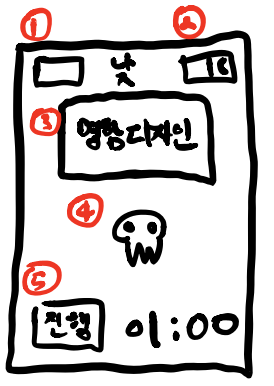 ① ②
낮 16
③ 명함디자인
④
⑤
진행 01:00